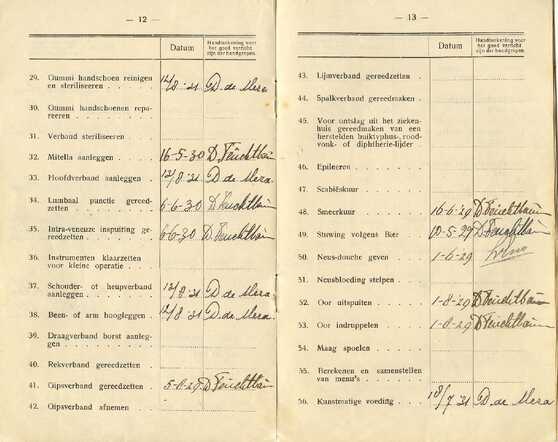 — 12 —
Datum
Handteekening voor het goed verricht zijn der handgrepen.
29. Gummi handschoen reinigen
en steriliseeren . . . . . 12/8-31 D. de Mera
30. Gummi handschoenen repa-
reeren . . . . . . .
31. Verband steriliseeren . . .
32. Mitella aanleggen . . . . 16-5-30 D Feuchtbaum
33. Hoofdverband aanleggen . . 12/8 31 D. de Mera
34. Lumbaal punctie gereed-
zetten . . . . . . . 6-6-30 D. Feuchtbaum
35. Intra-veneuze inspuiting ge-
reedzetten . . . . . . 6-6-30 D. Feuchtbaum
36. Instrumenten klaarzetten
voor kleine operatie . . .
37. Schouder- of heupverband
aanleggen . . . . . . 12/8-31 D. de Mera
38. Been- of arm hoogleggen . . 12/8 31 D. de Mera.
39. Draagverband borst aanleg-
gen . . . . . . . .
40. Rekverband gereedzetten . .
41. Gipsverband gereedzetten . . D Feuchtbaum
42. Gipsverband afnemen . . .
— 13 —
Datum
Handteekening voor het goed verricht zijn der handgrepen.
43. Lijmverband gereedzetten . .
44. Spalkverband gereedmaken .
45. Voor ontslag uit het zieken-
huis gereedmaken van een
herstelden buiktyphus-, rood-
vonk- of diphtherie-lijder . .
46. Epileeren . . . . . .
47. Schabiëskuur . . . . .
48. Smeerkuur . . . . . . 16-6-29 D Feuchtbaum
49. Stuwing volgens Bier . . . 10-5-29 D Feuchtbaum
50. Neus-douche geven . . . 1-6-29
51. Neusbloeding stelpen . . .
52. Oor uitspuiten . . . . . 1-8-29 D Feuchtbaum
53. Oor indruppelen . . . . 1-8-29 D Feuchtbaum
54. Maag spoelen . . . . .
55. Berekenen en samenstellen
van menu's . . . . . .
56. Kunstmatige voeding . . . 18/7 31 D. de Mera